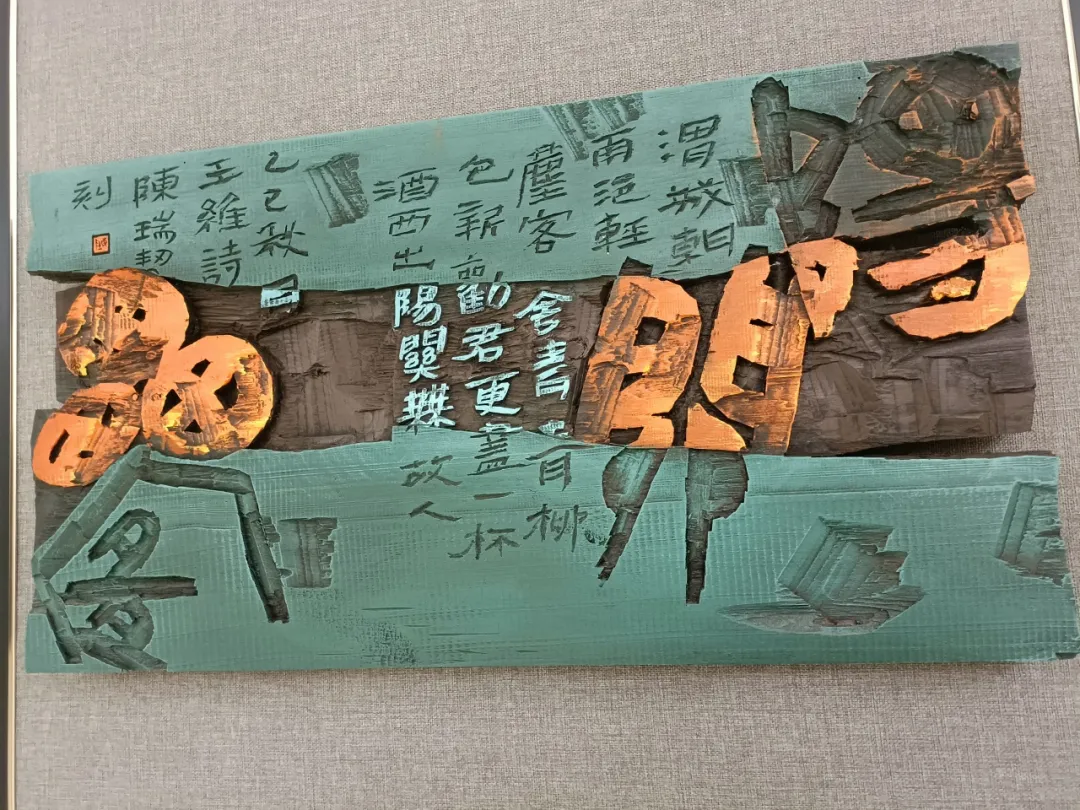 陽關疊
渭城朝
雨浥輕
塵客舍青青柳
色新勸君更盡一杯
酒西出陽關無故人
乙巳秋月
王維詩
陳瑞
刻